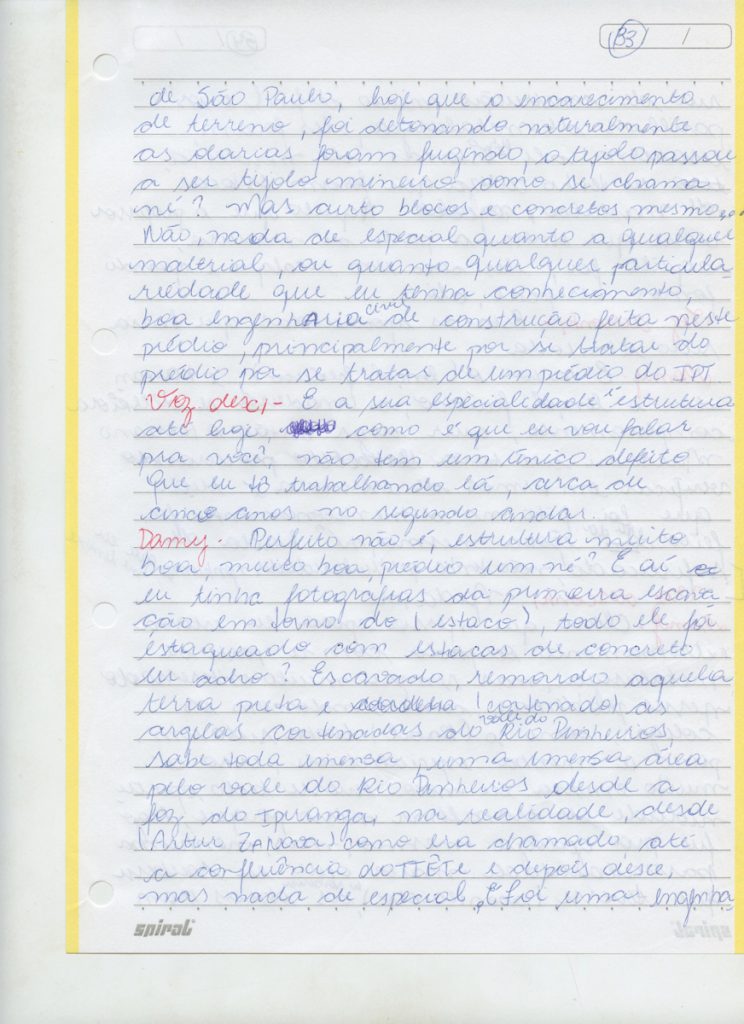 B3 /
de São Paulo, hoje que o encarecimento
de terreno, foi detonando naturalmente
as olarias foram fugindo, o tijolo passou
a ser tijolo mineiro como se chama
né? Mas curto blocos e concretos, mesmo,
Não, nada de especial quanto a qualquer
material, ou quanto qualquer particula-
riedade que eu tenha conhecimento,
boa engenharia civil de construção feita neste
prédio, principalmente por se tratar do
prédio por se tratar de um prédio do IPT
Voz desc,- E a sua especialidade é estrutura
até hoje, como é que eu vou falar
pra você, não tem um único defeito
que eu tô trabalhando lá, cerca de
cinco anos no segundo andar.
Damy- Perfeito não é, estrutura muito
boa, muito boa, prédio um né? E aí
eu tinha fotografias da primeira escava
ção em torno do (estaco), todo ele foi
estaqueado com estacas de concreto
eu acho? Escavado, removido aquela
terra preta e (cortenado) as
argelas cortenadas do vale do Rio Pinheiros,
sabe toda imensa, uma imensa área
pelo vale do Rio Pinheiros desde a
foz do Ipiranga, na realidade, desde
(Artur ZANOXA) como era chamado, até
a confluência do TIÊTE e depois desce,
mas nada de especial, E foi uma engenha-
spiral